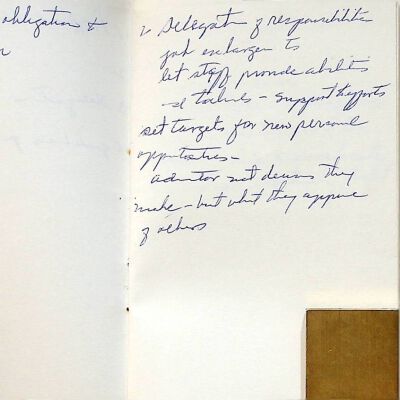 obligation &
2 Delegation of responsibilities
job enlargen to
let staff provide abilities
& talents - support efforts
set targets for new personal
opportunities -
not decisions they
make - but what they approve
of others